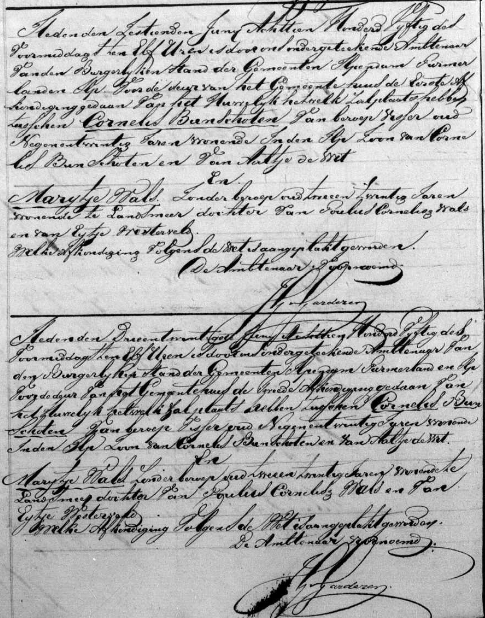 Heden den Zestienden Juny Achttien Honderd Vyftig des
Voormiddags ten Elf Uren is door ons ondergeteekende Ambtenaar
van den Burgerlyken Stand der Gemeenten Ilpendam Purmer
landen Ilp voor de deur van het Gemeente huis de Eerste Af
kondiging gedaan van het Huwelyk hetwelk zal plaats hebben
tusschen Cornelis Bunschoten van beroep Visser oud
Negenentwintig Jaren wonende in den Ilp Zoon van Corne
lis Bunschoten en van Aaltje de Wet
En
Marytje Wals Zonder beroep oud twee en twintig Jaren
wonende te Landsmeer dochter van Poulus Cornelisz Wals
en van Eytje Westerveld.
Welke Afkondiging Volgens de Wet is aangeplakt geworden.
De Ambtenaar Voornoemd
Garderen
Heden den Drieentwintigste Juny Achttien Honderd Vyftig des
Voormiddags ten Elf Uren is door ons ondergeteekende Ambtenaar Van
den Burgerlyken Stand der Gemeenten Ilpendam Purmerland en Ilp
Voor de deur van het Gemeente huis de tweede Afkondiging gedaan Van
het Huwelyk hetwelk Zal plaats hebben tusschen Cornelis Bun
Schoten Van beroep Visser oud Negenentwintig Jaren wonende
in den Ilp Zoon van Cornelis Bunschoten en van Aaltje de Wet.
En
Marytje Wals Zonder beroep oud twee en twintig Jaren wonende te
Landsmeer dochter Van Poulus Cornelisz Wals en Van
Eytje Westerveld
Welke Afkondiging Volgens de Wet is aangeplakt geworden.
De Ambtenaar Voornoemd.
Garderen